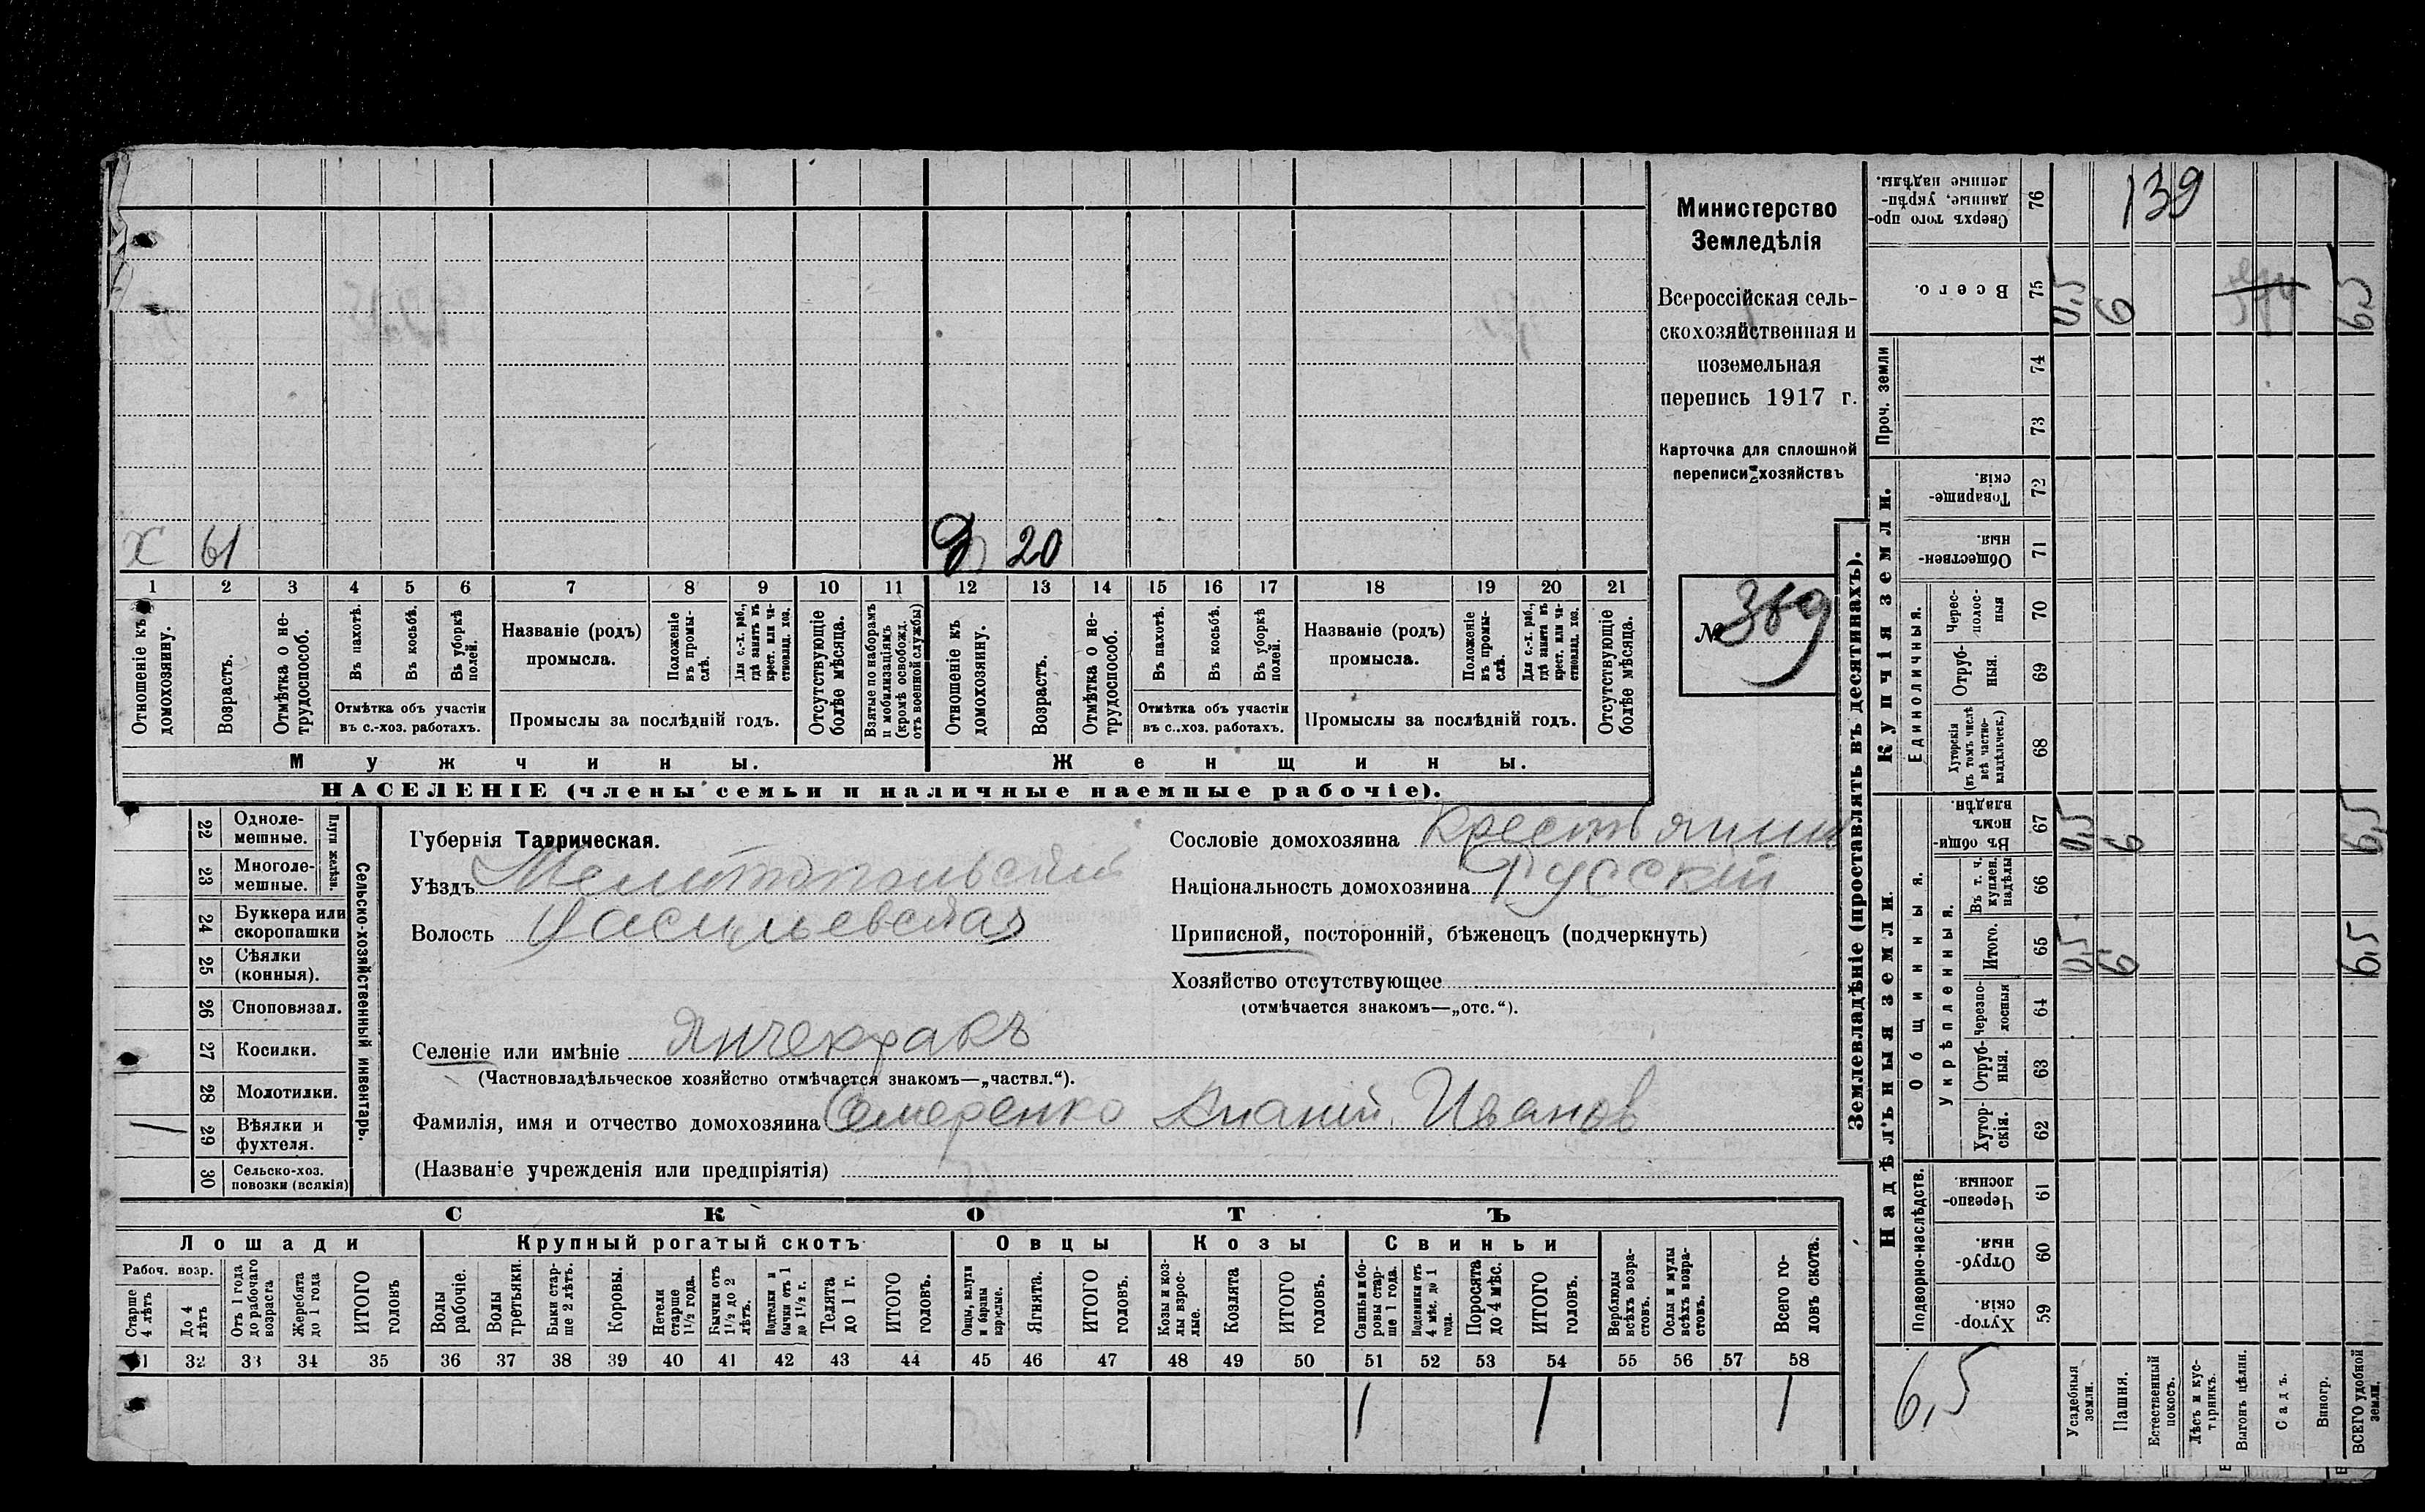 Министерство
Земледѣлія
Всероссійская сель-
скохозяйственная и
поземельная
перепись 1917 г.
Карточка для сплошной
переписи хозяйствъ
№ 389
х 61
20
1 2 3 4 5 6 7 8 9 10 11 12 13 14 15 16 17 18 19 20 21
Отношеніе къ домохозяину.
Возрастъ.
Отмѣтка о не-
трудоспособ.
Въ пахотѣ.
Въ косьбѣ.
Въ уборкѣ
полей.
Отмѣтка объ участіи
въ с.-хоз. работахъ.
Названіе (родъ)
промысла.
Положеніе
въ промы-
слѣ.
Для с.-х. раб.,
гдѣ занятъ въ
крест. или ча-
стновлад. хоз.
Промыслы за послѣдній годъ.
Отсутствующіе
болѣе мѣсяца.
Взятые по наборамъ
и мобилизаціямъ
(кромѣ освобожд.
отъ военной службы)
Отношеніе къ
домохозяину.
Возрастъ.
Отмѣтка о не-
трудоспособ.
Въ пахотѣ.
Въ косьбѣ.
Въ уборкѣ
полей.
Отмѣтка объ участіи
въ с..хоз. работахъ.
Названіе (родъ)
промысла.
Положеніе
въ промы-
слѣ.
Для с.-х. раб.,
гдѣ занята въ
крест. или ча-
стновлад. хоз.
Промыслы за послѣдній годъ.
Отсутствующіе
болѣе мѣсяца.
Мужчины.
Женщины.
НАСЕЛЕНІЕ (члены семьи и наличные наемные рабочіе).
22 Одноле-
мешные.
23 Многоле-
мешные.
Плуги желѣзн.
24 Буккера или
скоропашки
25 Сѣялки
(конныя).
26 Сноповязал.
27 Косилки.
28 Молотилки.
29 Вѣялки и
фухтеля.
30 Сельско-хоз.
повозки (всякія)
Сельско-хозяйственный инвентарь.
Губернія Таврическая.
Уѣздъ Мелитопольский
Волость Васильевская
Селеніе или имѣніе Янчекракъ
(Частновладѣльческое хозяйство отмѣчается знакомъ—„частвл.“).
Фамилія, имя и отчество домохозяина Семеренко Ананій Иванов
(Названіе учрежденія или предпріятія)
Сословіе домохозяина Крестьянин
Національность домохозяина Русскій
Приписной, посторонній, бѣженецъ (подчеркнуть)
Хозяйство отсутствующее
(отмѣчается знакомъ—„отс.“).
СКОТЪ
Лошади
Крупный рогатый скотъ
Овцы
Козы
Свиньи
Рабоч. возр.
Старше
4 лѣтъ
До 4
лѣтъ
Отъ 1 года
до рабочаго
возраста
Жеребята
до 1 года
ИТОГО
головъ
Волы
рабочіе.
Волы
третьяки.
Быки стар-
ше 2 лѣтъ.
Коровы.
Нетели
старше
1½ года.
Бычки отъ
1½ до 2
лѣтъ.
Подтелки и
бычки отъ 1
до 1½ г.
Телята
до 1 г.
ИТОГО
головъ.
Овцы, валухи
и бараны
взрослые.
Ягнята.
ИТОГО
головъ.
Козы и коз-
лы взрос-
лые.
Козлята
ИТОГО
головъ.
Свиньи и бо-
ровы стар-
ше 1 года.
Подсвинки отъ
4 мѣс. до 1
года.
Поросята
до 4 мѣс.
ИТОГО
головъ.
Верблюды
всѣхъ возра-
стовъ.
Ослы и мулы
всѣхъ возра-
стовъ.
Всего го-
ловъ скота.
31 32 33 34 35 36 37 38 39 40 41 42 43 44 45 46 47 48 49 50 51 52 53 54 55 56 57 58
1 1 1
Землевладѣніе (проставлять въ десятинахъ).
Надѣльныя земли.
Купчія земли.
Проч. земли
Подворно-наслѣдств.
Общинныя.
укрѣпленныя.
Единоличныя.
Сверхъ того про-
данные, укрѣп-
ленные надѣлы.
76
139
Всего.
75
0,5 6 6,5
74
73
Товарище-
скія.
72
Обществен-
ныя.
71
Черес-
полос-
ныя
70
Отруб-
ныя.
69
Хуторскія
(въ томъ числѣ
всѣ частно-
владѣльческ.)
68
Въ общи-
номъ
владѣн.
67
0,5 6 6,5
Въ т. ч.
куплен.
надѣлы
66
Итого.
65
0,5 6 6,5
Черезпо-
лосныя
64
Отруб-
ныя.
63
Хутор-
скія.
62
Черезпо-
лосныя.
61
Отруб-
ныя.
60
Хутор-
скія.
59
6,5
Усадебныя
земли.
Пашня.
Естественный
покосъ.
Лѣсъ и кус-
тарникъ.
Выгонъ цѣлин.
Садъ.
Виногр.
ВСЕГО удобной
земли.